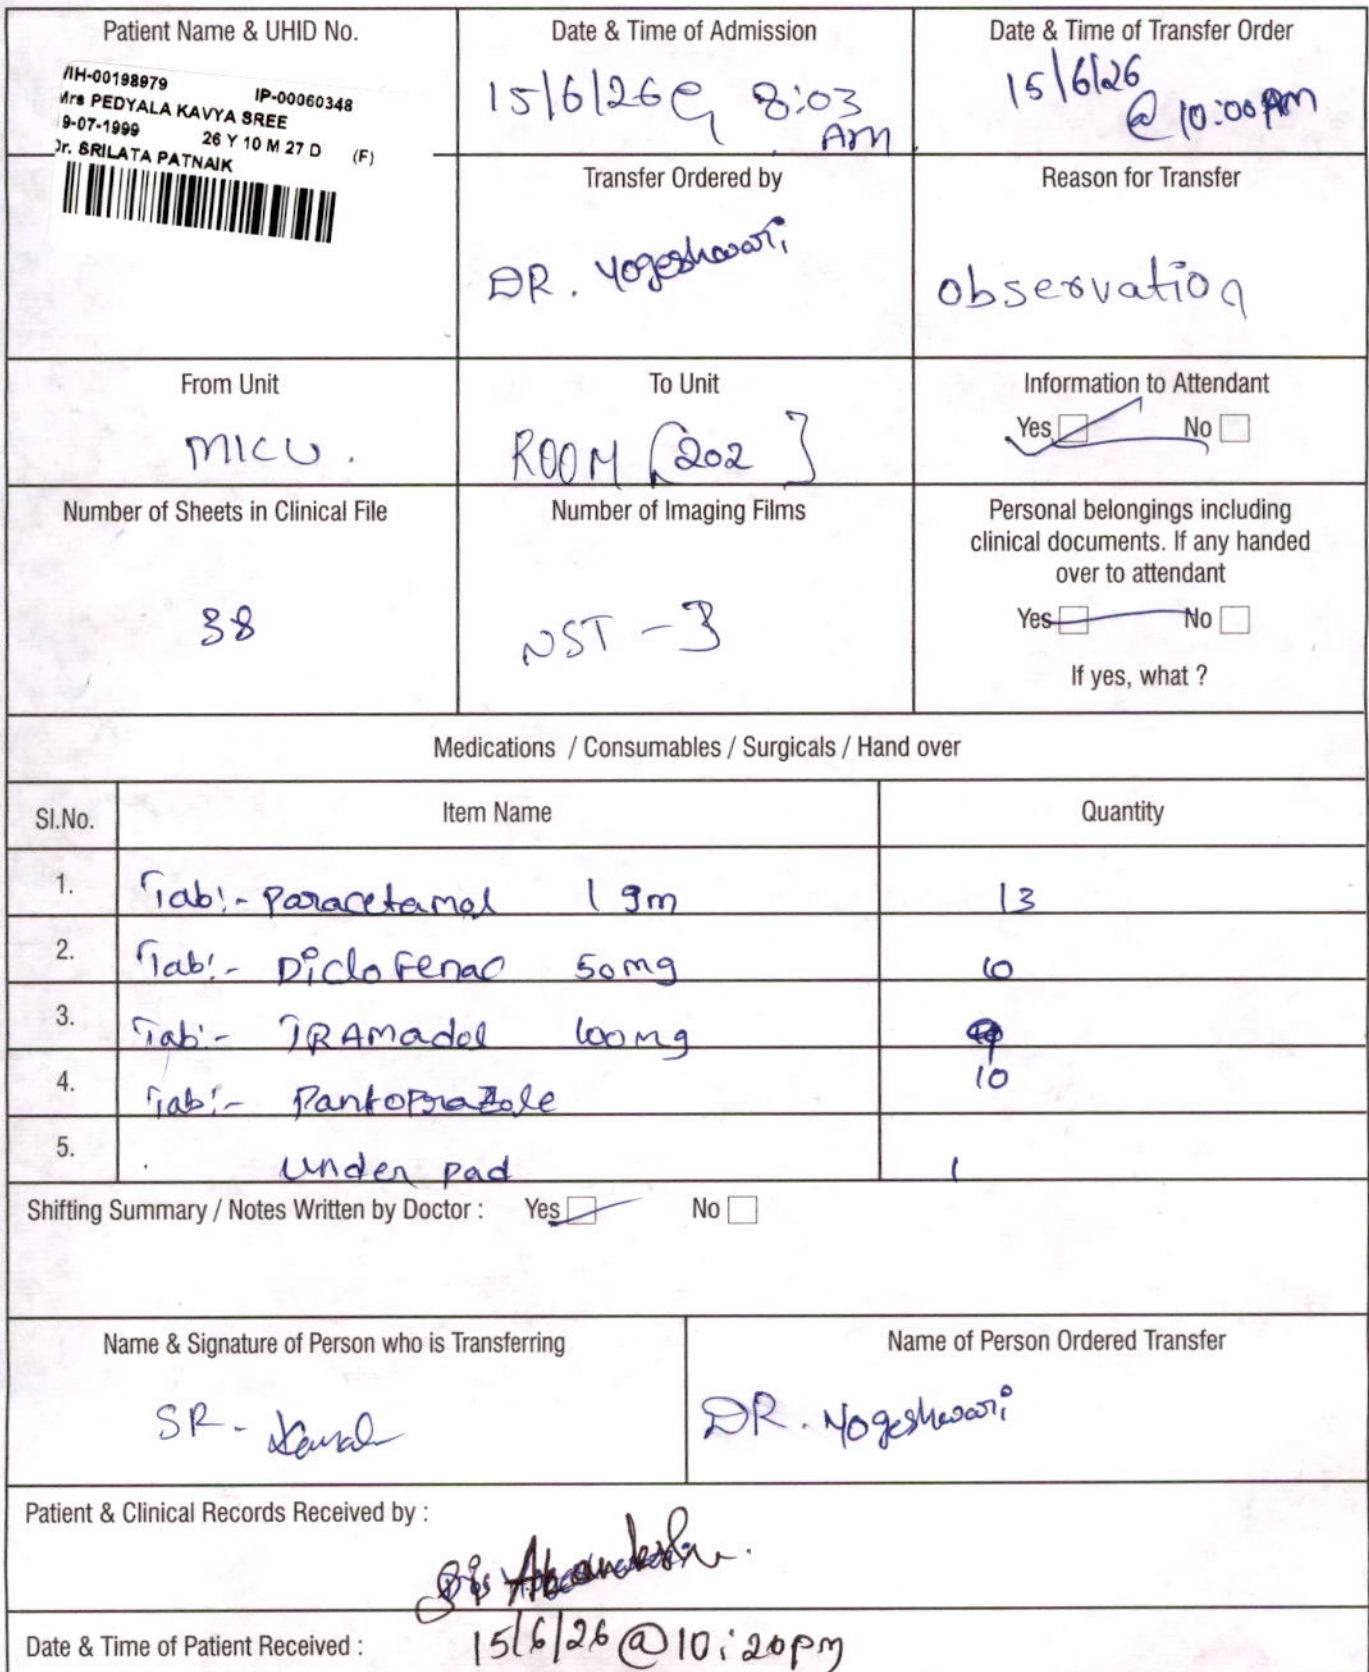 Patient Name & UHID No.
/IH-00198979 IP-00060348
Mrs PEDYALA KAVYA SREE
9-07-1999 26 Y 10 M 27 D (F)
Dr. SRILATA PATNAIK
Date & Time of Admission
15/6/26 @ 8:03
AM
Date & Time of Transfer Order
15/6/26
@ 10:00
Transfer Ordered by
DR. Yogeshwari
Reason for Transfer
observation
From Unit
MICU.
To Unit
ROOM [202]
Information to Attendant
Yes No
Number of Sheets in Clinical File
38
Number of Imaging Films
NST - 3
Personal belongings including
clinical documents. If any handed
over to attendant
Yes No
If yes, what ?
Medications / Consumables / Surgicals / Hand over
Sl.No. Item Name Quantity
1. Tab:- Paracetamol 1 gm 13
2. Tab:- Diclofenac 50mg 10
3. Tab:- TRAmadol 100mg
4. Tab:- Pantoprazole 10
5. Under pad 1
Shifting Summary / Notes Written by Doctor : Yes No
Name & Signature of Person who is Transferring
SR -
Name of Person Ordered Transfer
DR. Yogeshwari
Patient & Clinical Records Received by :
Date & Time of Patient Received : 15/6/26 @ 10:20pm